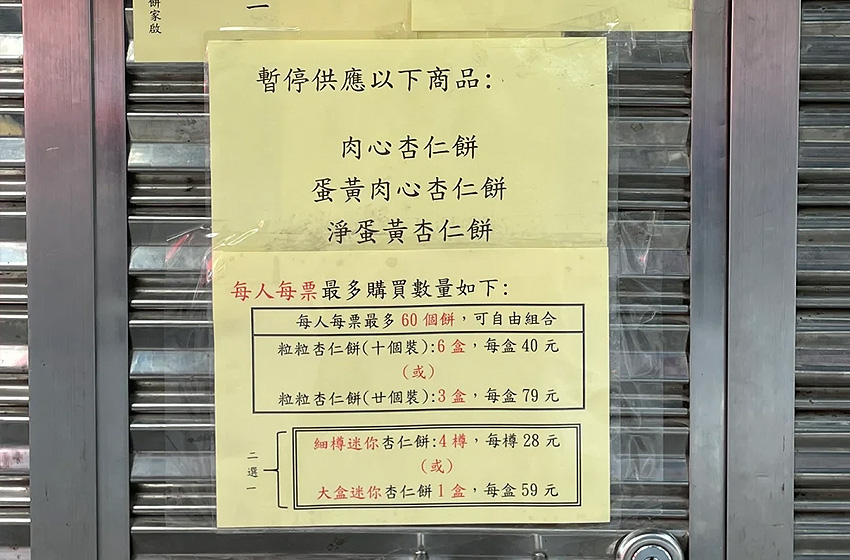 餅家啟
一
暫停供應以下商品:
肉心杏仁餅
蛋黃肉心杏仁餅
淨蛋黃杏仁餅
每人每票最多購買數量如下:
每人每票最多 60 個餅，可自由組合
粒粒杏仁餅(十個裝):6 盒，每盒 40 元
(或)
粒粒杏仁餅(廿個裝):3 盒，每盒 79 元
二選一
細樽迷你杏仁餅:4 樽，每樽 28 元
(或)
大盒迷你杏仁餅 1 盒，每盒 59 元